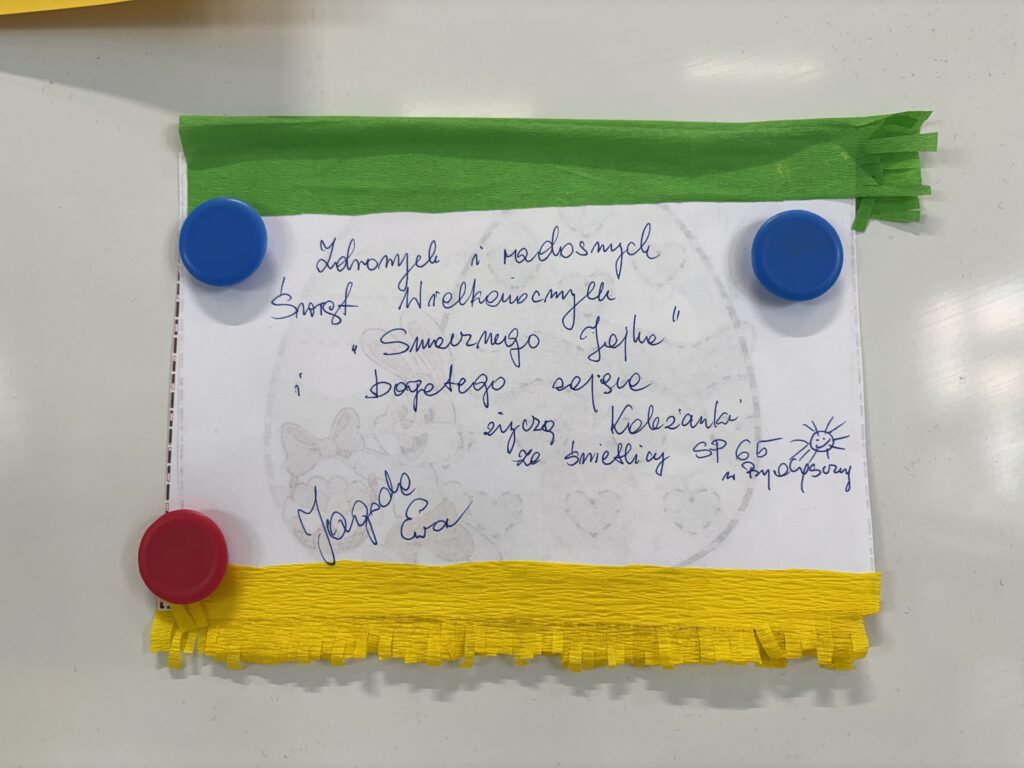 Zdrowych i radosnych
Świąt Wielkanocnych
"Smacznego Jajka"
i bogatego zająca
życzą Koleżanki
ze świetlicy SP 65
w Bydgoszczy
Jagoda
Ewa